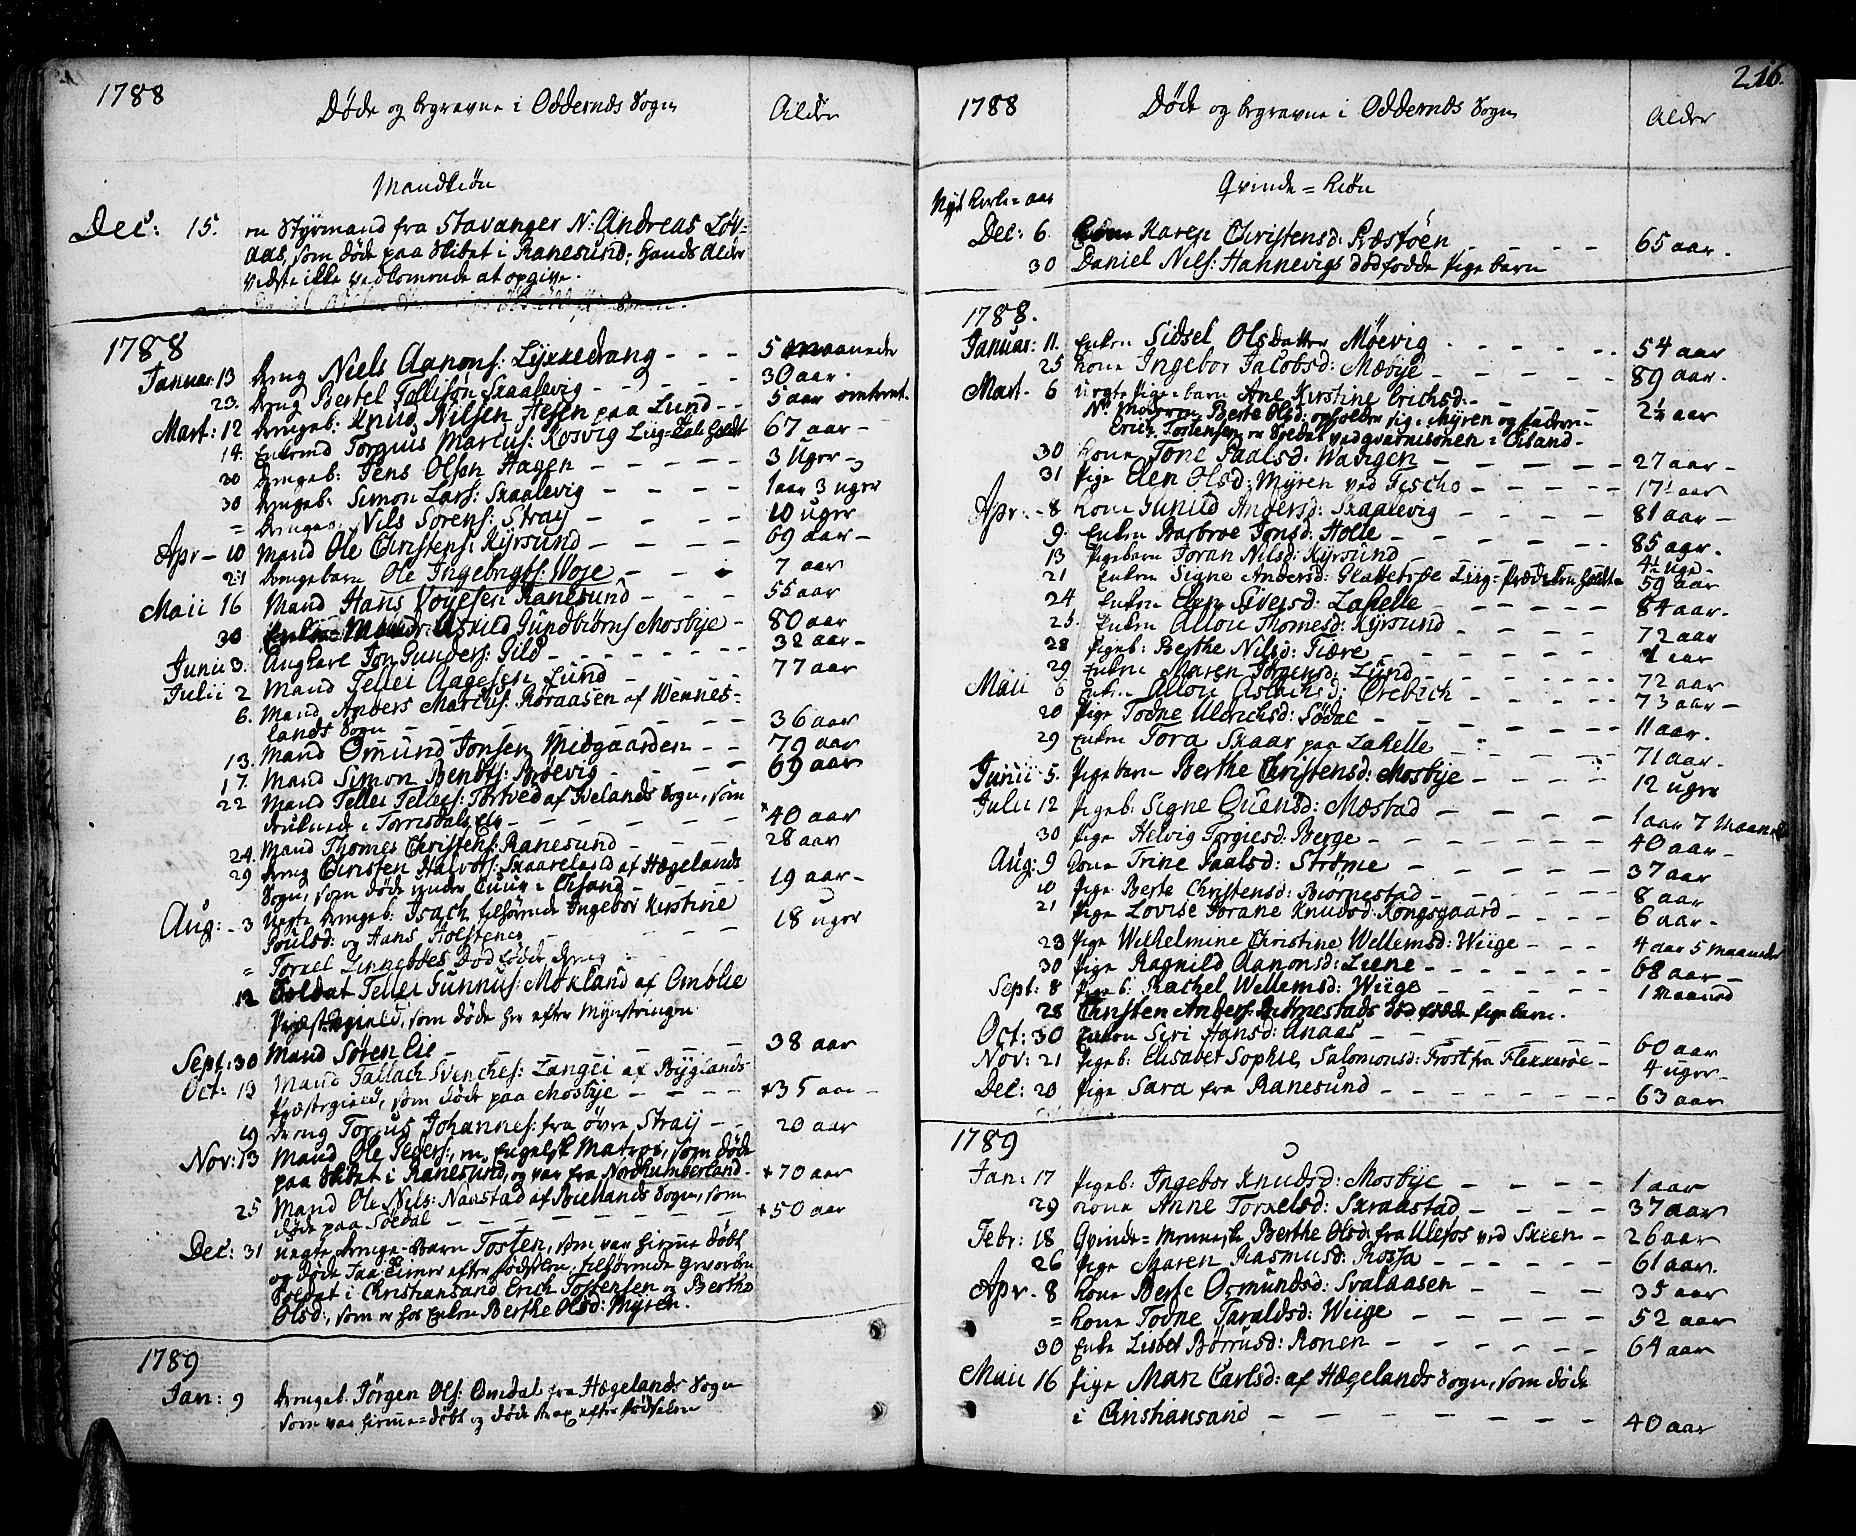 1788
Døde og begravne i Oddernæs Sogn
Alder
Mandkiøn
Dec: 15. en Styrmand fra Stavanger N: Andreas Løv-
aas, som døde paa Skibet i Ranesund; hands Alder
vidste ikke vedkommende at opgive.
1788
Januar 13 dreng Niels Aanons: Lykkedrang - - - 5 maaneder
23. dreng Bertel Tollisøn Skaalevig - - - 30 aar.
drengeb: Knud Nilsen paa Lund - - 5 aar omtrent.
Mart: 12 Enkemd Torgius Marcus: Kosvig 67 aar -
14. drengeb: Jens Olsen Hagen - - - - 3 Uger -
30 drengeb: Simon Lars: Skaalevig - - - - 1 aar 3 uger
30 drengeb: Nils Sørens: Straj - - - - 10 uger
= Mand Ole Christens: Kyrsund - - - - 69 aar -
Apr - 10 drengebarn Ole Ingebrigts: Woje - - 7 aar
21 Mand Hans Voyesen Ranesund - - - 55 aar
Maii 16 Astrid Gundbiørns Mosbye - 80 aar
30 Ungkarl Jon Gunders: Gild - - - - - - 32 aar -
Junii 3. Mand Tellei Aagesen Lund - - - 77 aar
Julii 2 Mand Anders Marcus: Røraasen af Wennes-
6. lands Sogn - - - - - - 36 aar
Mand Omund Jonsen Midgaarden - - 79 aar
13. Mand Simon Bendts: Brøevig - - - - 69 aar
17. Mand Tellei Tellefs: Tortved af Ivelands Sogn, som
22 druknede i Torrisdals Elv - - - - - *40 aar
Mand Thomes Christens: Ranesund - - - 28 aar
24. dreng Christen Halvors: Skaareland af Hægelands
29 Sogn, som døde under Cuur i Chsand - - - 19 aar -
Aug: - 3 Uegte drengeb: Isach tilhørende Ingebor Kirstine
Poulsd: og Hans Holstener - - - - 18 uger
= Torkel Lingebøes dødfødde dreng
12 Soldat Tellei Gunnus: Møkland af Omblie
Præstegield, som døde her efter Mynstringen
Sept: 30 Mand Søren Eie - - - - - - 38 aar
Oct: 13 Mand Tallach Svenches: Langei af Byglands
Præstegield, som døde paa Mosbye - - - - *35 aar -
19 dreng Torjus Johannes: fra øvre Straij - - 20 aar
Nov: 13 Mand Ole Peders:, en Engelsk Matros, som døde
paa Skibet i Ranesund, og var fra Nordhumberland - *70 aar
25 Mand Ole Nils: Naastad af Biellands Sogn, som
døde paa Søedal - - - - - - - *50 aar
Dec: 31 uægte drenge-Barn Tosten, som var hiemme døbt
og døde faa Timer efter fødselen, tilhørende gevorben
Soldat i Christiansand Erich Tostensen og Berthe
Olsd:, som er hos Enken Berthe Olsd: Myren.
1789
Jan: 9 drengeb. Jørgen Ols: Omdal fra Hægelands Sogn
som var hiemme-døbt og døde strax efter fødselen
216.
1788
Døde og begravne i Oddernæs Sogn
Alder
Qvinde = kiøn
Nyt Kirke-aar
Dec: 6. Karen Christensd: Præstøen - - - - 65 aar.
30 Daniel Nils: Hannevigs dødfødde Pigebarn
1788.
Januar: 11. Enken Sidsel Olsdatter Møevig - - - 54 aar
25 kone Ingebor Jacobsd: Mæbye - - - 89 aar.
Mart. 6 uegte Pige-barn Ane Kirstine Erichsd: - - 2½ aar
NB Moderen Berte Olsd: opholder sig i Myren og faderen
Erich Tostensen er Soldat ved gvarnisonen i Chsand -
30 kone Tone Paalsd: Waagen - - - - 27 aar -
31 Pige Elen Olsd: Myren ved Fischo - - - 17½ aar
Apr: - 8 kone Gunild Andersd: Skaalevig - - - 81 aar -
9. Enken Barbroe Jonsd: Holle - - - - 85 aar.
13 Pigebarn Joran Nilsd: Kyrsund - - - - 4½ uge -
21 Enken Signe Andersd: Glattetræ Liig-Prædiken holdt - 59 aar
24 Enken Elen Sversd: Lahelle - - - - - 84 aar -
25. Enken Allou Thomesd: Kyrsund - - - 72 aar
28 Pigeb: Berthe Nilsd: Tiære - - - - 1 aar
29 Enken Maren Jørgensd: Lund - - - - 72 aar
Maii 6 Enken Allou Aslachsd: Ørebich - - - 73 aar -
20 Pige Todne Ulrichsd: Sødal - - - - 11 aar.
29 Enken Tora Skaar paa Lahelle - - - 71 aar.
Junii 5. Pigebarn Berthe Christensd: Mosbye - - - 12 uger
Julii 12 Pigeb: Signe Quensd: Mæstad - - - - 1 aar 7 Maaneder
30 Pige Helvig Torgiesd: Berge - - - - 40 aar -
Aug: 9 kone Trine Paalsd: Strømme - - - - 37 aar
10 Pige Berte Christensd: Biørnestad - - - 8 aar
21 Pige Lovise Jorane Knudsd: Kongsgaard - - - 6 aar -
23 Pige Wilhelmine Christine Wellemsd: Wiige - - - 4 aar 5 maaneder
30 Pige Ragnild Aanonsd: Liene - - - - 68 aar -
Sept: 8 Pigeb: Rachel Wellemsd: Wiige - - - - 1 Maaned
28 Christen Anders: Biørnestads dødfødde Pigebarn.
Oct: 30 Enken Siri Hansd: Anaas - - 60 aar
Nov: 21 Pigeb: Elisabet Sophie Salomonsd: Frost fra Flekkerøe - 4 uger -
Dec: 20 Pige Sara fra Ranesund - - - - - - 63 aar
1789
Jan: 17 Pigeb: Ingebor Knudsd: Mosbye - - - 1 aar
29 kone Anne Torkelsd: Skraastad - - - - 37 aar
Febr: 18 Qvinde=Menneske Berthe Olsd: fra Ulefos ved Skien - 26 aar
26 Pige Maren Rasmusd: Kossa - - - 61 aar.
Apr - 8 kone Berte Ormundsd: Svalaasen - - - 35 aar
= kone Todne Taraldsd: Wiige - - - - 52 aar
30 Enke Lisbet Børrusd: Ronen - - - - 64 aar
Maii 16 Pige Mari Carlsd: af Hægelands Sogn, som døde
i Christiansand - - - - - - - 40 aar